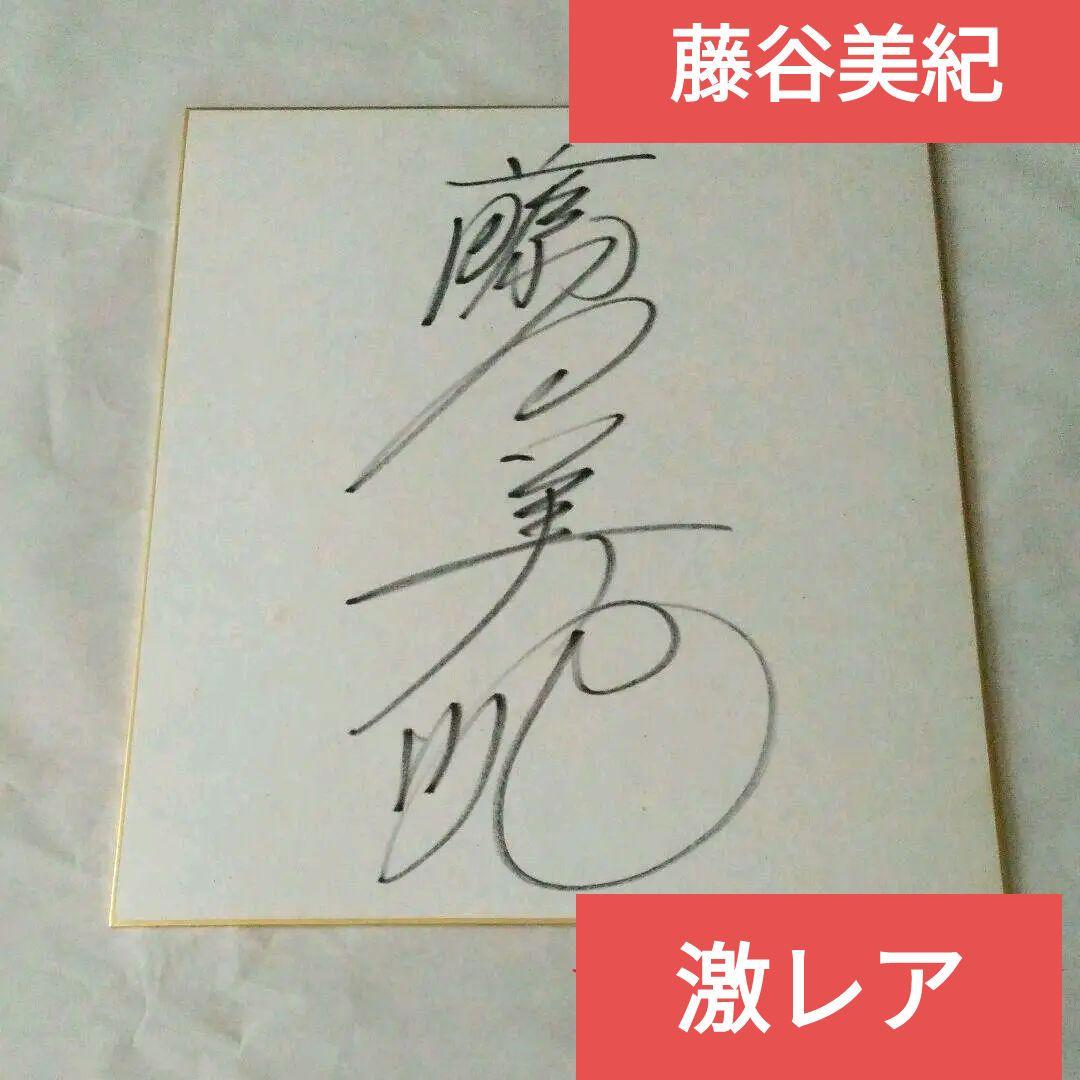 藤谷美紀
藤谷美紀
激レア